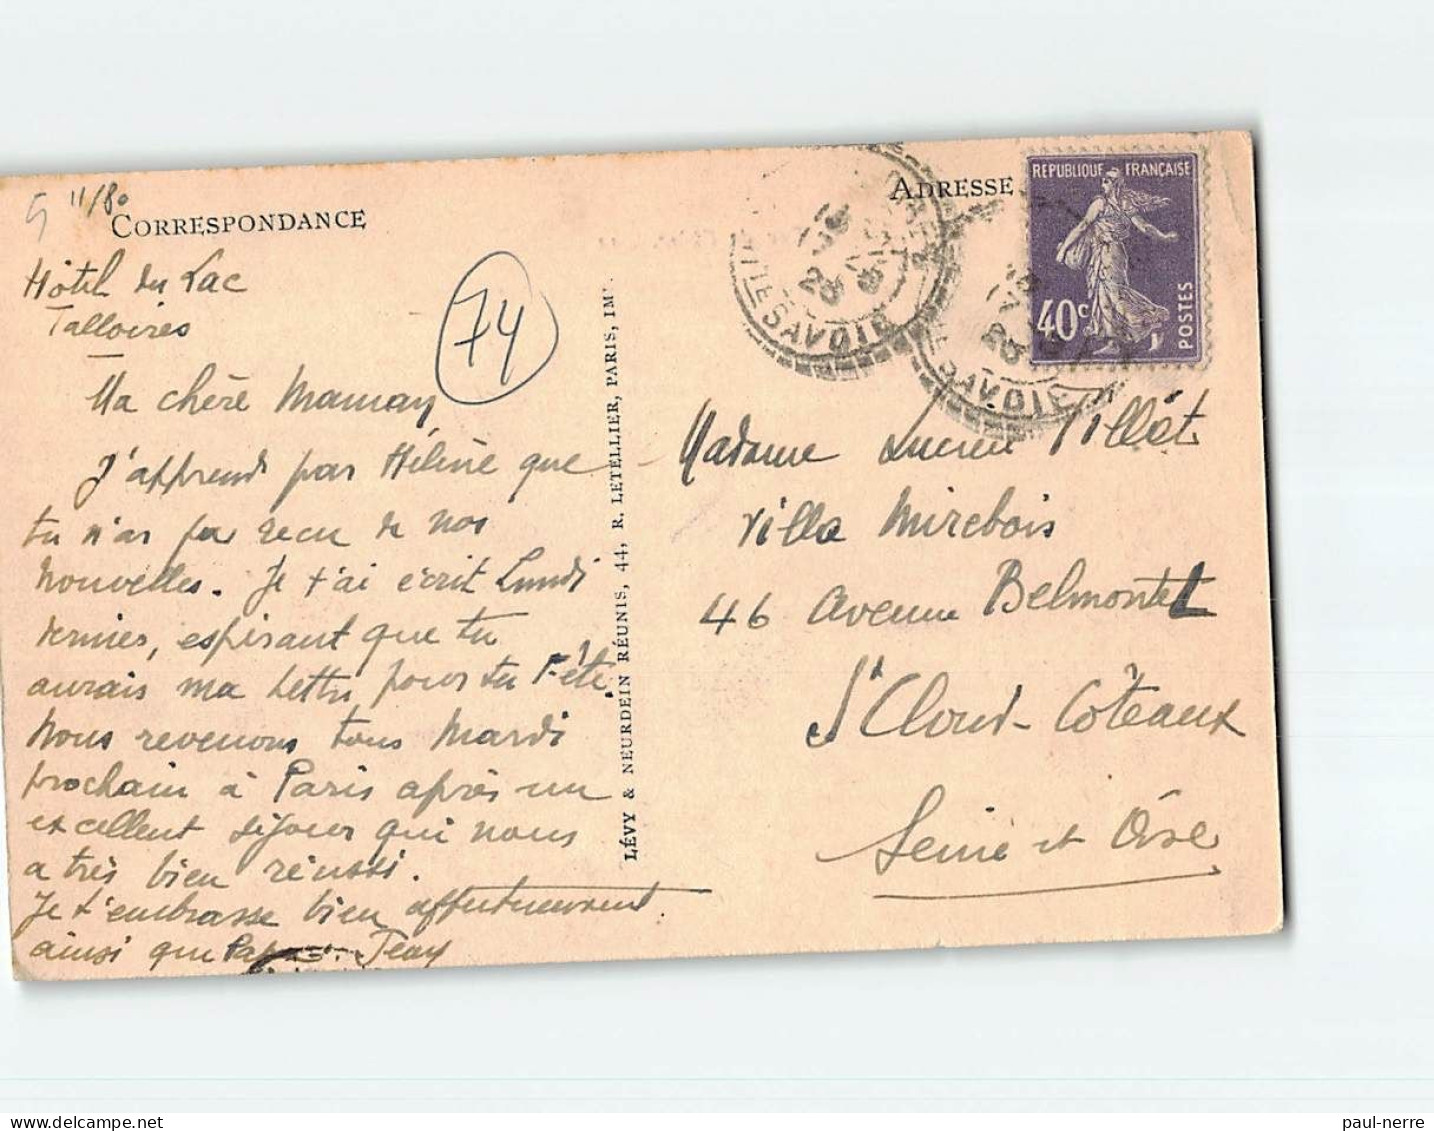 11/80
CORRESPONDANCE
Hôtel du Lac
Talloires
74
Ma chère Maman
J'apprend par Hélène que
tu n'as pas recu de nos
nouvelles. Je t'ai écrit Lundi
dernier, espérant que tu
aurais ma lettre pour ta Fête.
Nous revenons tous Mardi
prochain à Paris après un
excellent séjour qui nous
a très bien réussi.
Je t'embrasse bien affectueusement
ainsi que Papa. Jean
LÉVY & NEURDEIN RÉUNIS, 44, R. LETELLIER, PARIS, IMP.
ADRESSE
REPUBLIQUE FRANÇAISE
40c
POSTES
HTE SAVOIE
SAVOIE
Madame Lucien Tillet
Villa Mirebois
46 avenue Belmontet
St Cloud-Côteaux
Seine et Oise
paul-nerre